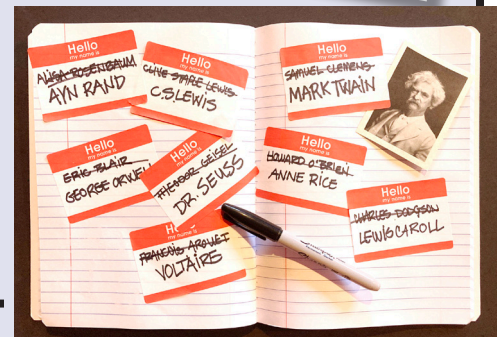 Hello
my name is
ALISA ROSENBAUM
AYN RAND
Hello
my name is
CLIVE STAPLE LEWIS
C.S. LEWIS
Hello
my name is
ERIC BLAIR
GEORGE ORWELL
Hello
my name is
THEODOR GEISEL
DR. SEUSS
my name is
FRANCOIS AROUET
VOLTAIRE
Hello
my name is
SAMUEL CLEMENS
MARK TWAIN
Hello
my name is
HOWARD O'BRIEN
ANNE RICE
Hello
my name is
CHARLES DODGSON
LEWIS CAROLL